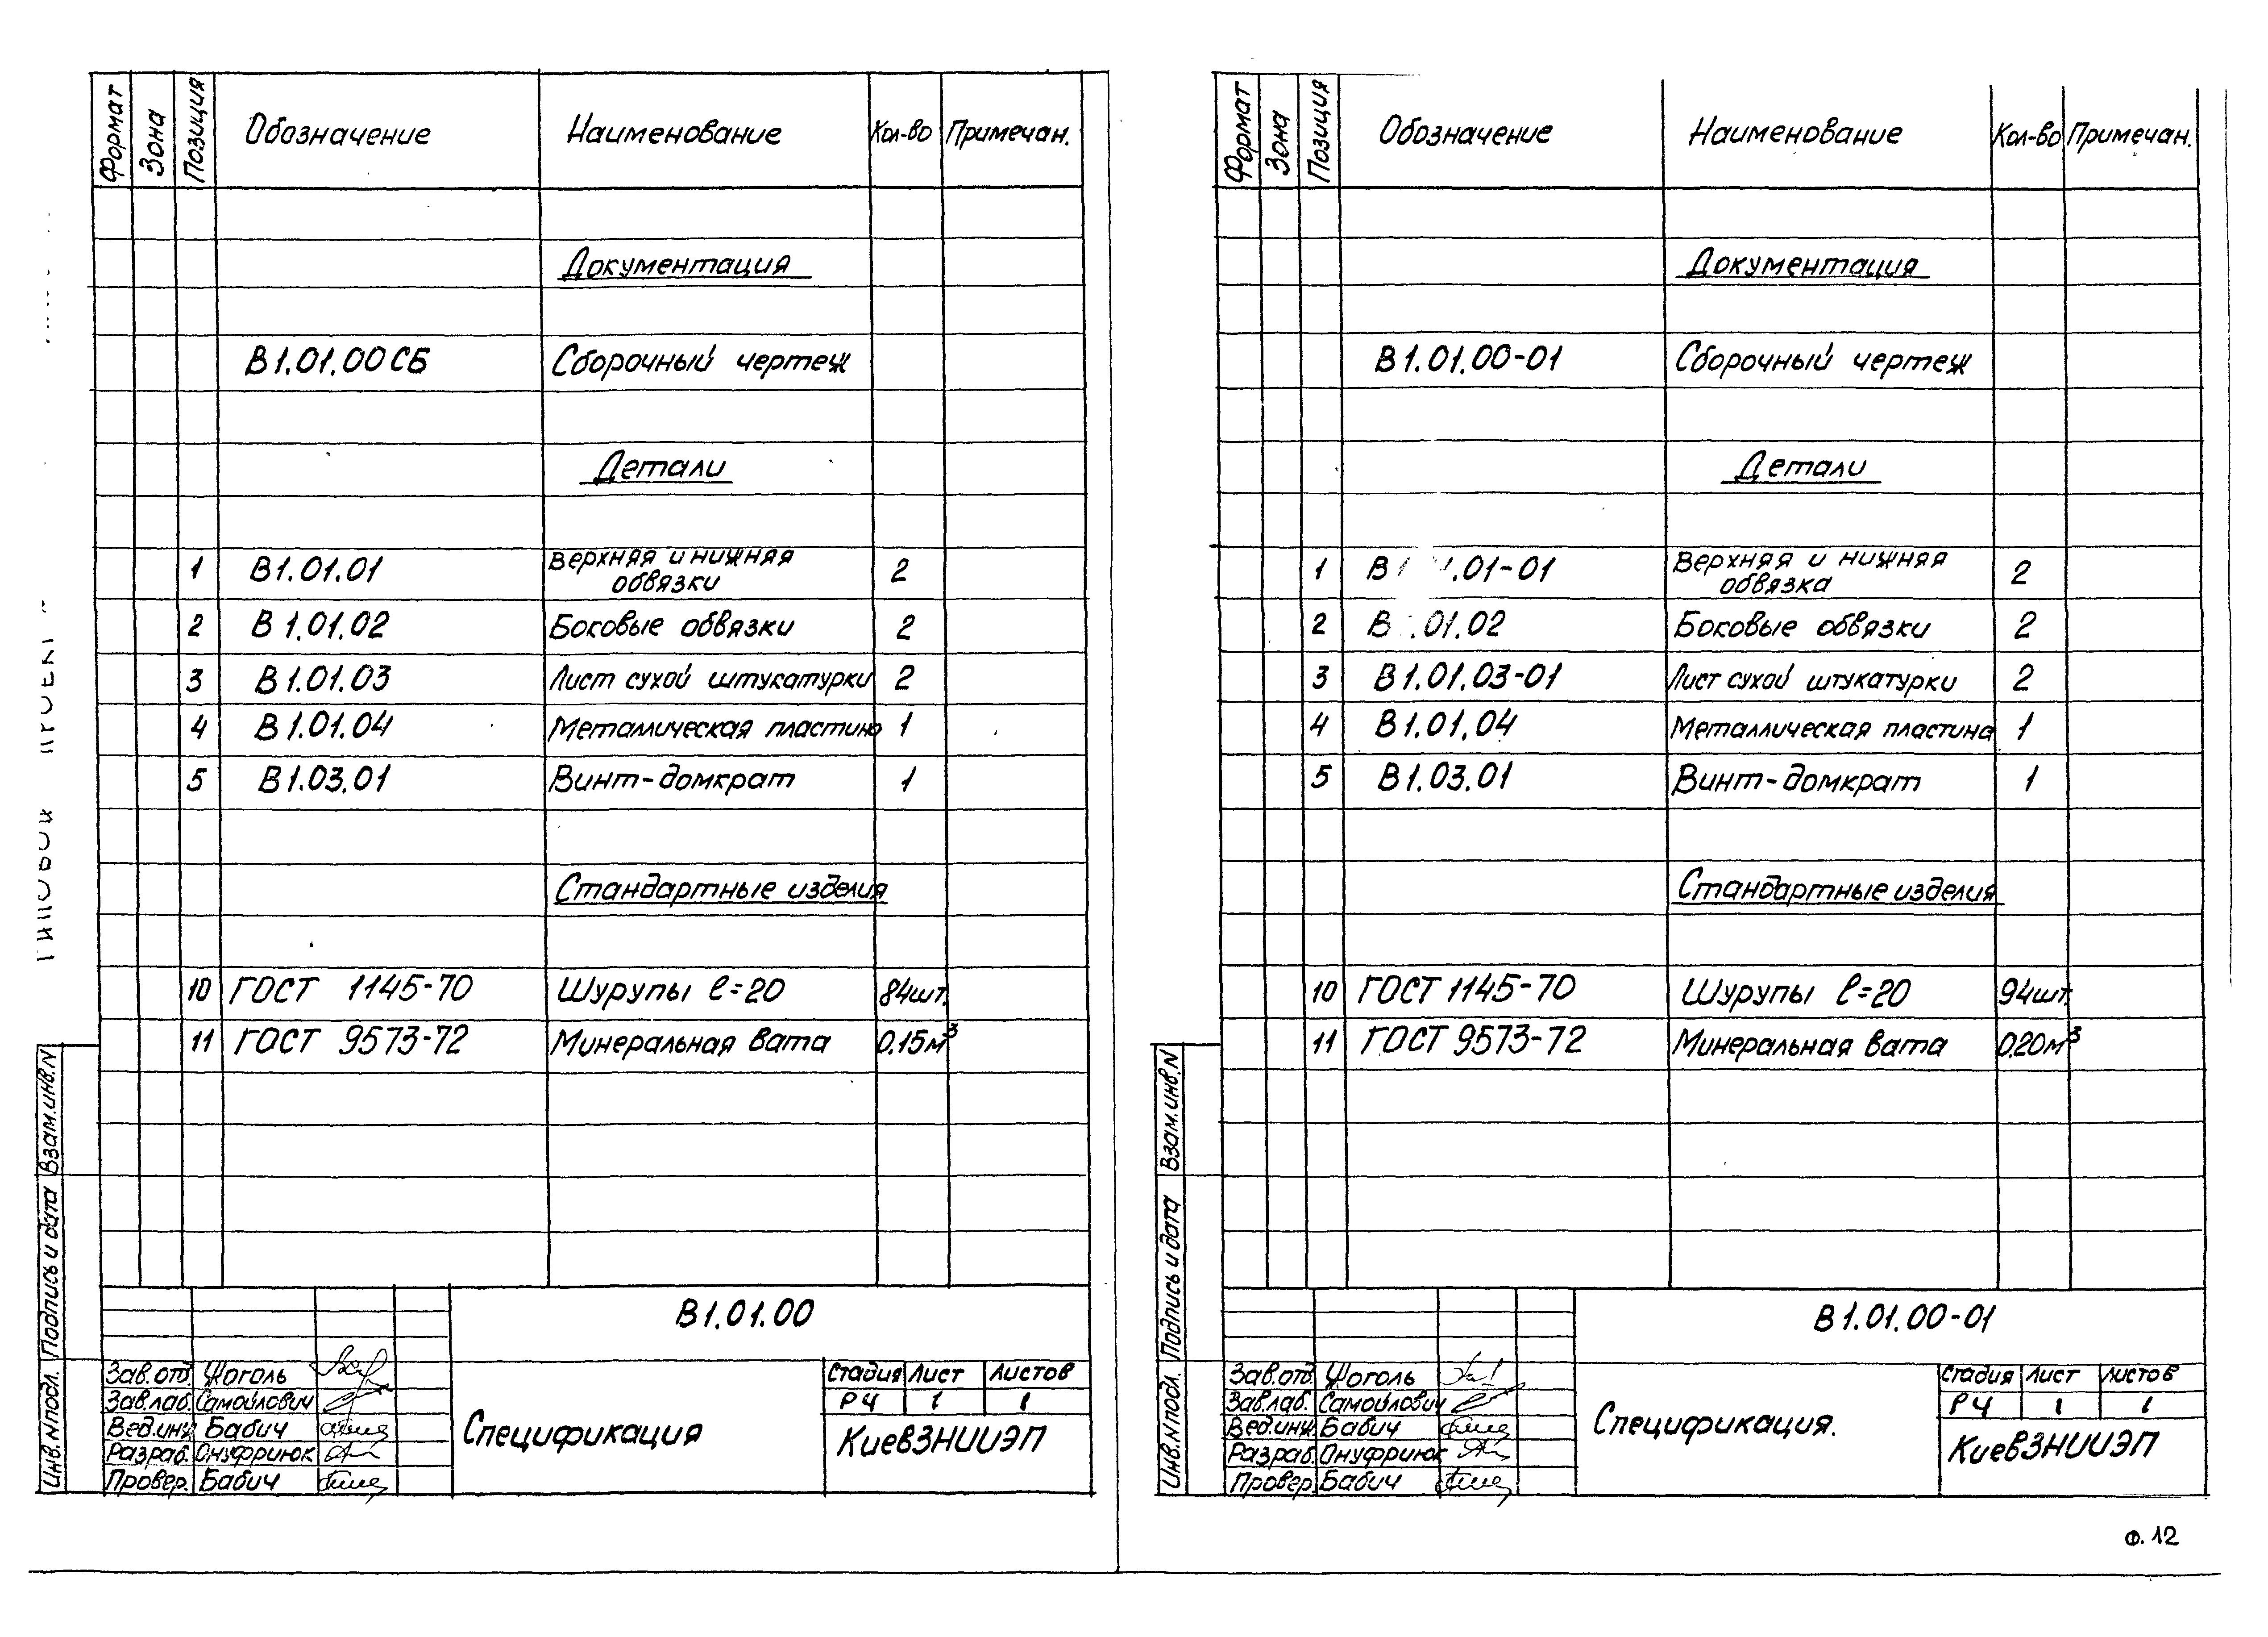 Формат Зона Позиция Обозначение Наименование Кол-во Примечан.
Документация
В1.01.00СБ Сборочный чертеж
Детали
1 В1.01.01 Верхняя и нижняя обвязки 2
2 В1.01.02 Боковые обвязки 2
3 В1.01.03 Лист сухой штукатурки 2
4 В1.01.04 Металлическая пластина 1
5 В1.03.01 Винт-домкрат 1
Стандартные изделия
10 ГОСТ 1145-70 Шурупы ℓ=20 84шт.
11 ГОСТ 9573-72 Минеральная вата 0.15м³
Инв.N подл. Подпись и дата Взам.инв.N
В1.01.00
Зав.отд. Щоголь
Зав.лаб. Самойлович
Вед.инж. Бабич
Разраб. Онуфриюк
Провер. Бабич
Спецификация
Стадия Лист Листов
РЧ 1 1
КиевЗНИИЭП
Формат Зона Позиция Обозначение Наименование Кол-во Примечан.
Документация
В1.01.00-01 Сборочный чертеж
Детали
1 .01-01 Верхняя и нижняя обвязка 2
2 .01.02 Боковые обвязки 2
3 В1.01.03-01 Лист сухой штукатурки 2
4 В1.01.04 Металлическая пластина 1
5 В1.03.01 Винт-домкрат 1
Стандартные изделия
10 ГОСТ 1145-70 Шурупы ℓ=20 94шт
11 ГОСТ 9573-72 Минеральная вата 0.20м³
Инв.N подл. Подпись и дата Взам.инв.N
В1.01.00-01
Зав.отд. Щоголь
Зав.лаб. Самойлович
Вед.инж. Бабич
Разраб. Онуфриюк
Провер. Бабич
Спецификация.
Стадия Лист Листов
РЧ 1 1
КиевЗНИИЭП
Ф.12